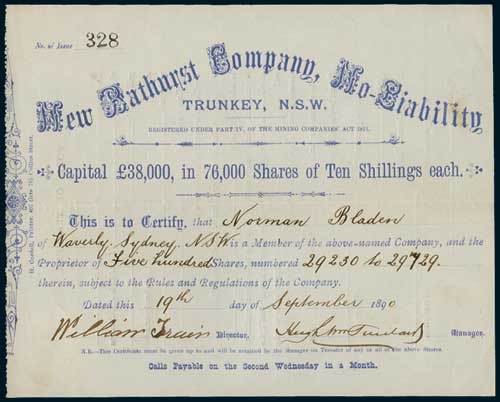 No. of Issue 328
New Bathurst Company, No-Liability
TRUNKEY, N.S.W.
REGISTERED UNDER PART IV. OF THE MINING COMPANIES' ACT 1871.
Capital £38,000, in 76,000 Shares of Ten Shillings each.
This is to Certify, that Norman Bladen
of Waverly, Sydney, NSW is a Member of the above-named Company, and the
Proprietor of Five hundred Shares, numbered 29230 to 29729.
therein, subject to the Rules and Regulations of the Company.
Dated this 19th day of September 1890
William Train Director. Hugh Manager.
N.B.—This Certificate must be given up to and will be retained by the Manager on Transfer of any or all of the above Shares.
Calls Payable on the Second Wednesday in a Month.
Printer, Collins Street